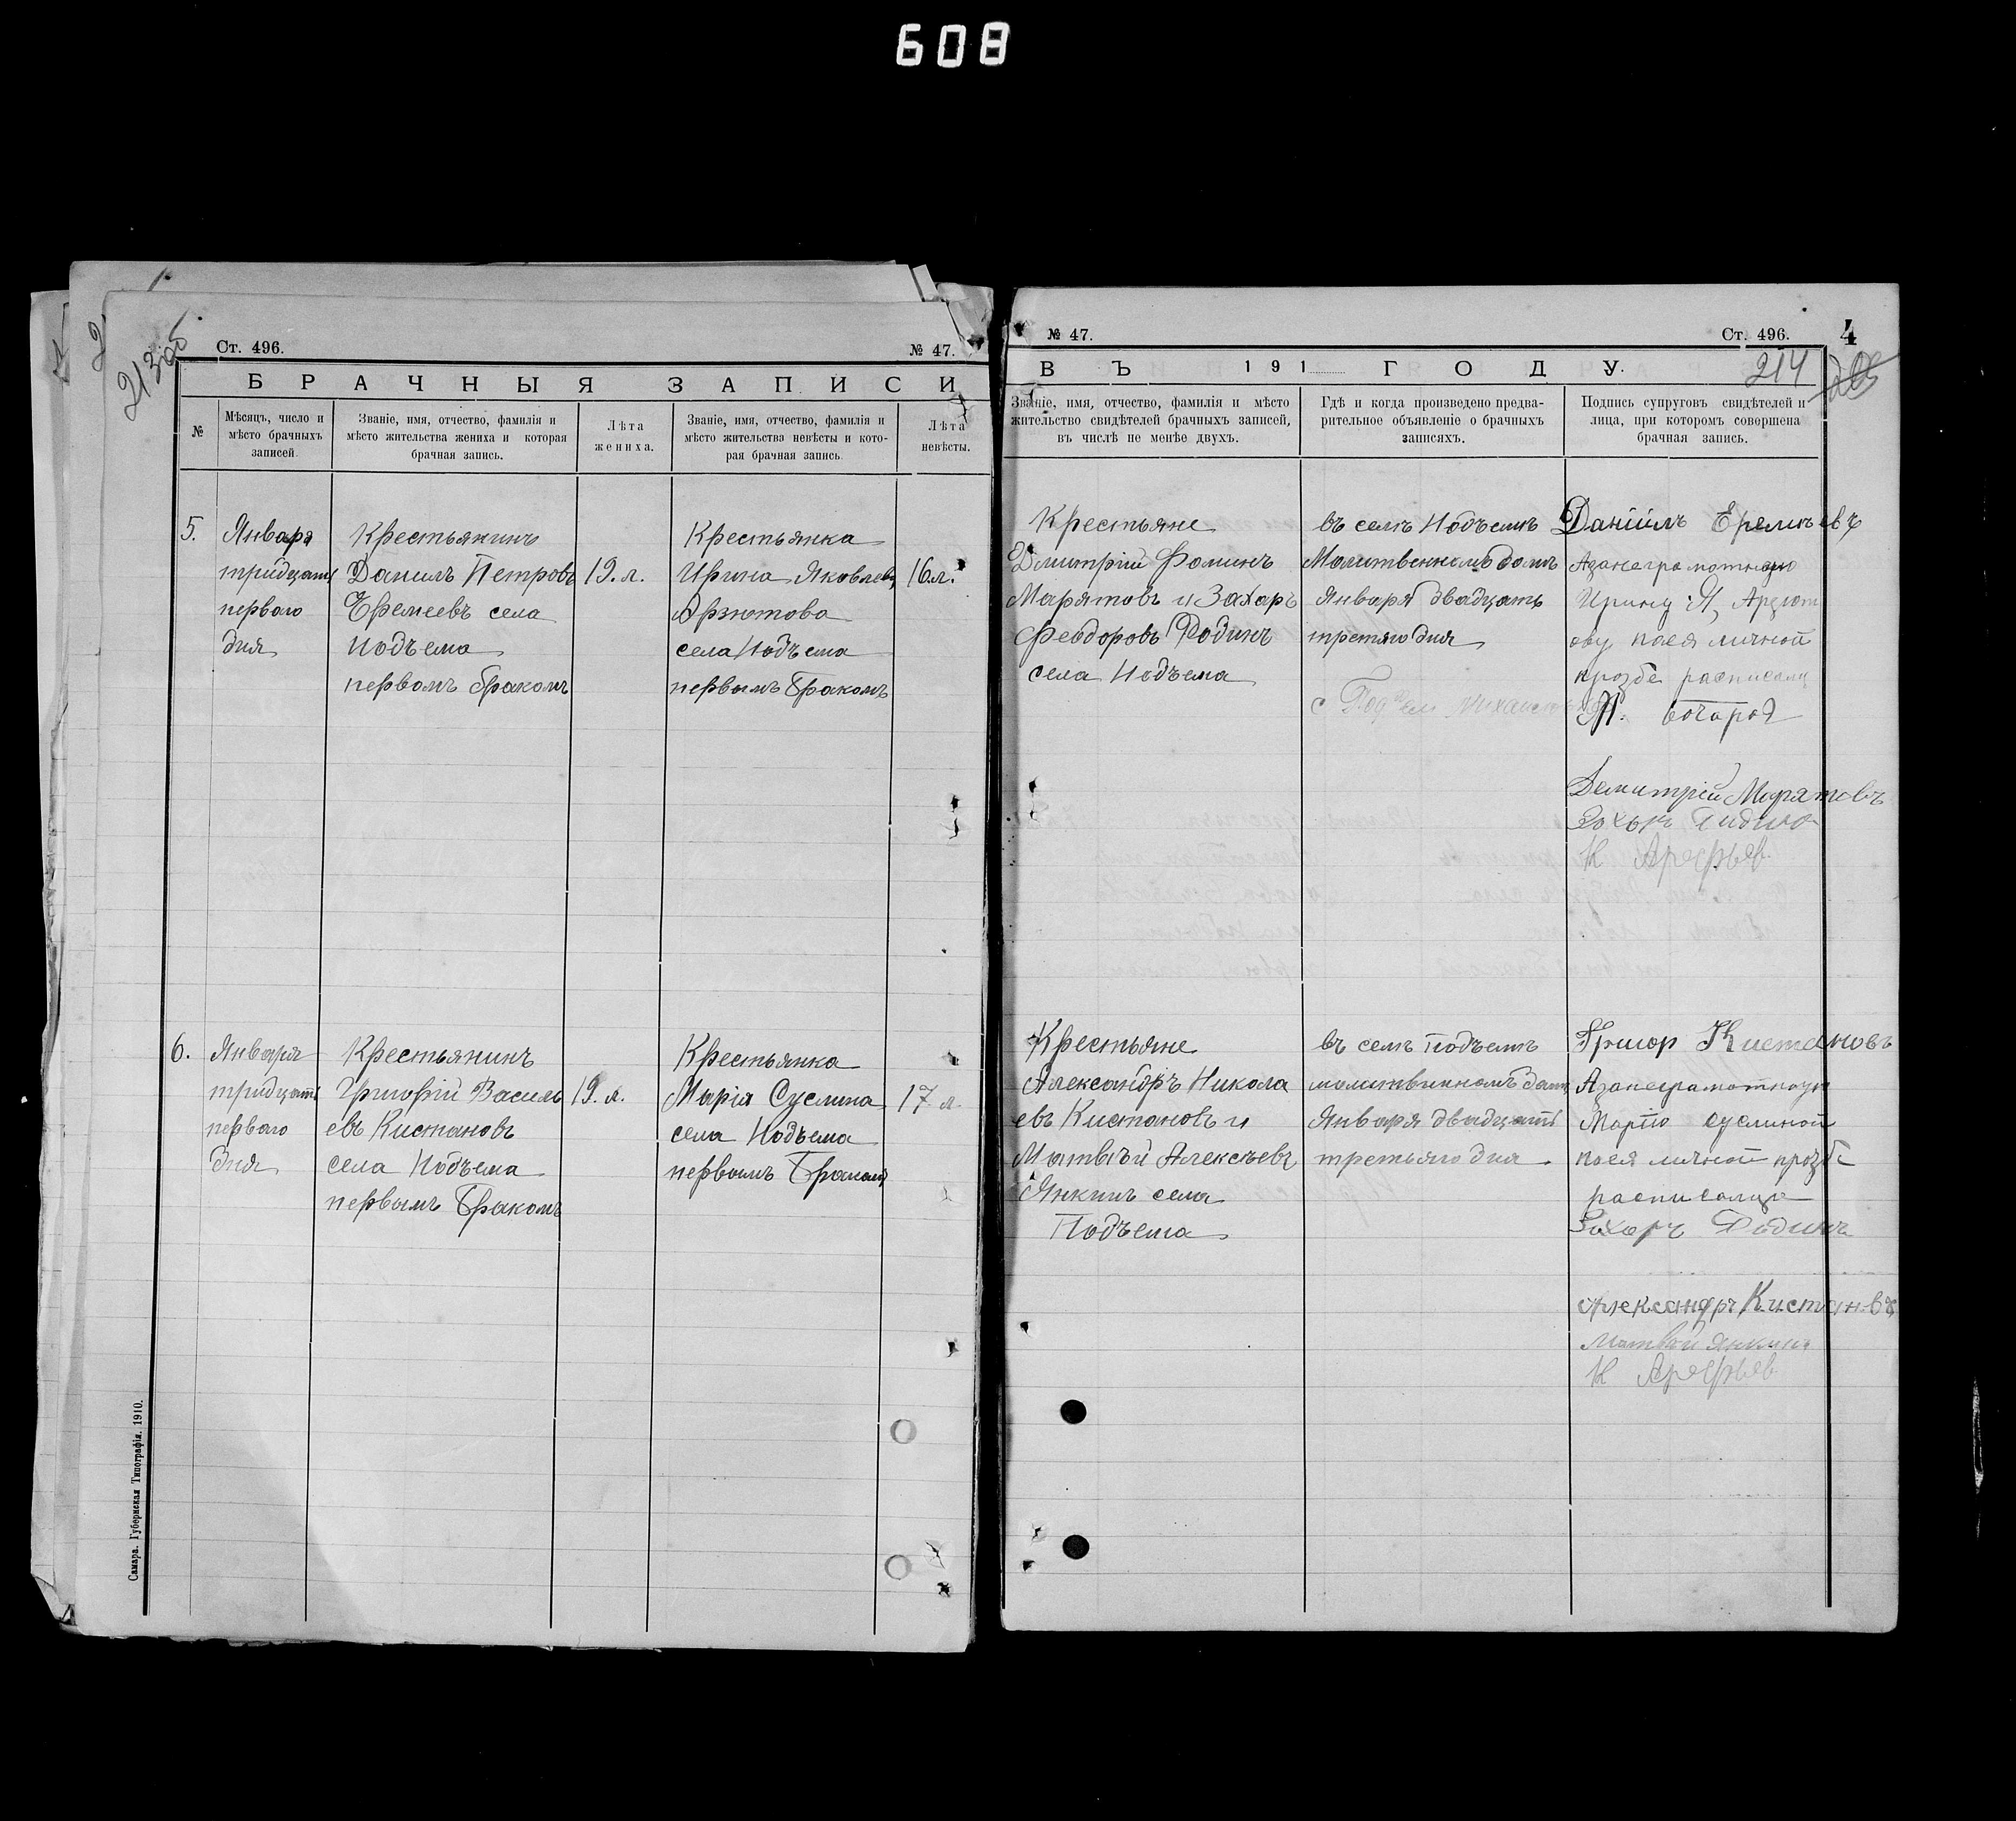 608
Ст. 496.
№ 47.
БРАЧНЫЯ ЗАПИСИ
№
Мѣсяцъ, число и
мѣсто брачныхъ
записей
Званіе, имя, отчество, фамилія и
мѣсто жительства жениха и которая
брачная запись.
Лѣта
жениха.
Званіе, имя, отчество, фамилія и
мѣсто жительства невѣсты и кото-
рая брачная запись
Лѣта
невѣсты.
5.
Января
тридцать
перваго
дня
Крестьянинъ
Данилъ Петровъ
Ефремеевъ села
Подъема
первомъ бракомъ
19. л.
Крестьянка
Ирина Яковлева
Арзютова
села Подъема
первымъ бракомъ
16 л.
6.
Января
тридцать
перваго
дня
Крестьянинъ
Григорій Василь
евъ Кистановъ
села Подъема
первымъ бракомъ
19. л.
Крестьянка
Марія Суслина
села Подъема
первымъ бракомъ
17 л.
Самара. Губернская Типографія. 1910.
№ 47.
Ст. 496.
4
ВЪ 191 ГОДУ.
214
Званіе, имя, отчество, фамилія и мѣсто
жительство свидѣтелей брачныхъ записей,
въ числѣ не менѣе двухъ.
Гдѣ и когда произведено предва-
рительное объявленіе о брачныхъ
записяхъ.
Подпись супруговъ свидѣтелей и
лица, при которомъ совершена
брачная запись.
Крестьяне
Дмитрій Фоминъ
Марятовъ и Захаръ
Феодоровъ Родинъ
села Подъема
въ селѣ Подъемѣ
Молитвенномъ домѣ
Января двадцать
третяго дня
с
Даніилъ Еремѣевъ
Азанеграмотную
Ирину Я, Арзют
ову поея личной
прозбе расписалц
Бочаров
Демитрій Марятовъ
К Арефьев
Крестьяне
Александръ Никола
евъ Кистановъ и
Матвѣй Алексѣевъ
Янкинъ села
Подъема
въ селѣ Подъемѣ
молитвенномъ домѣ
Января двадцать
третьяго дня.
Григор Кистановъ
Азанеграмотную
Марию суслиной
поея личной прозбе
расписалца
Захаръ Родинъ
Александръ Кистановъ
Матвѣй Янкинъ
К Арефьев